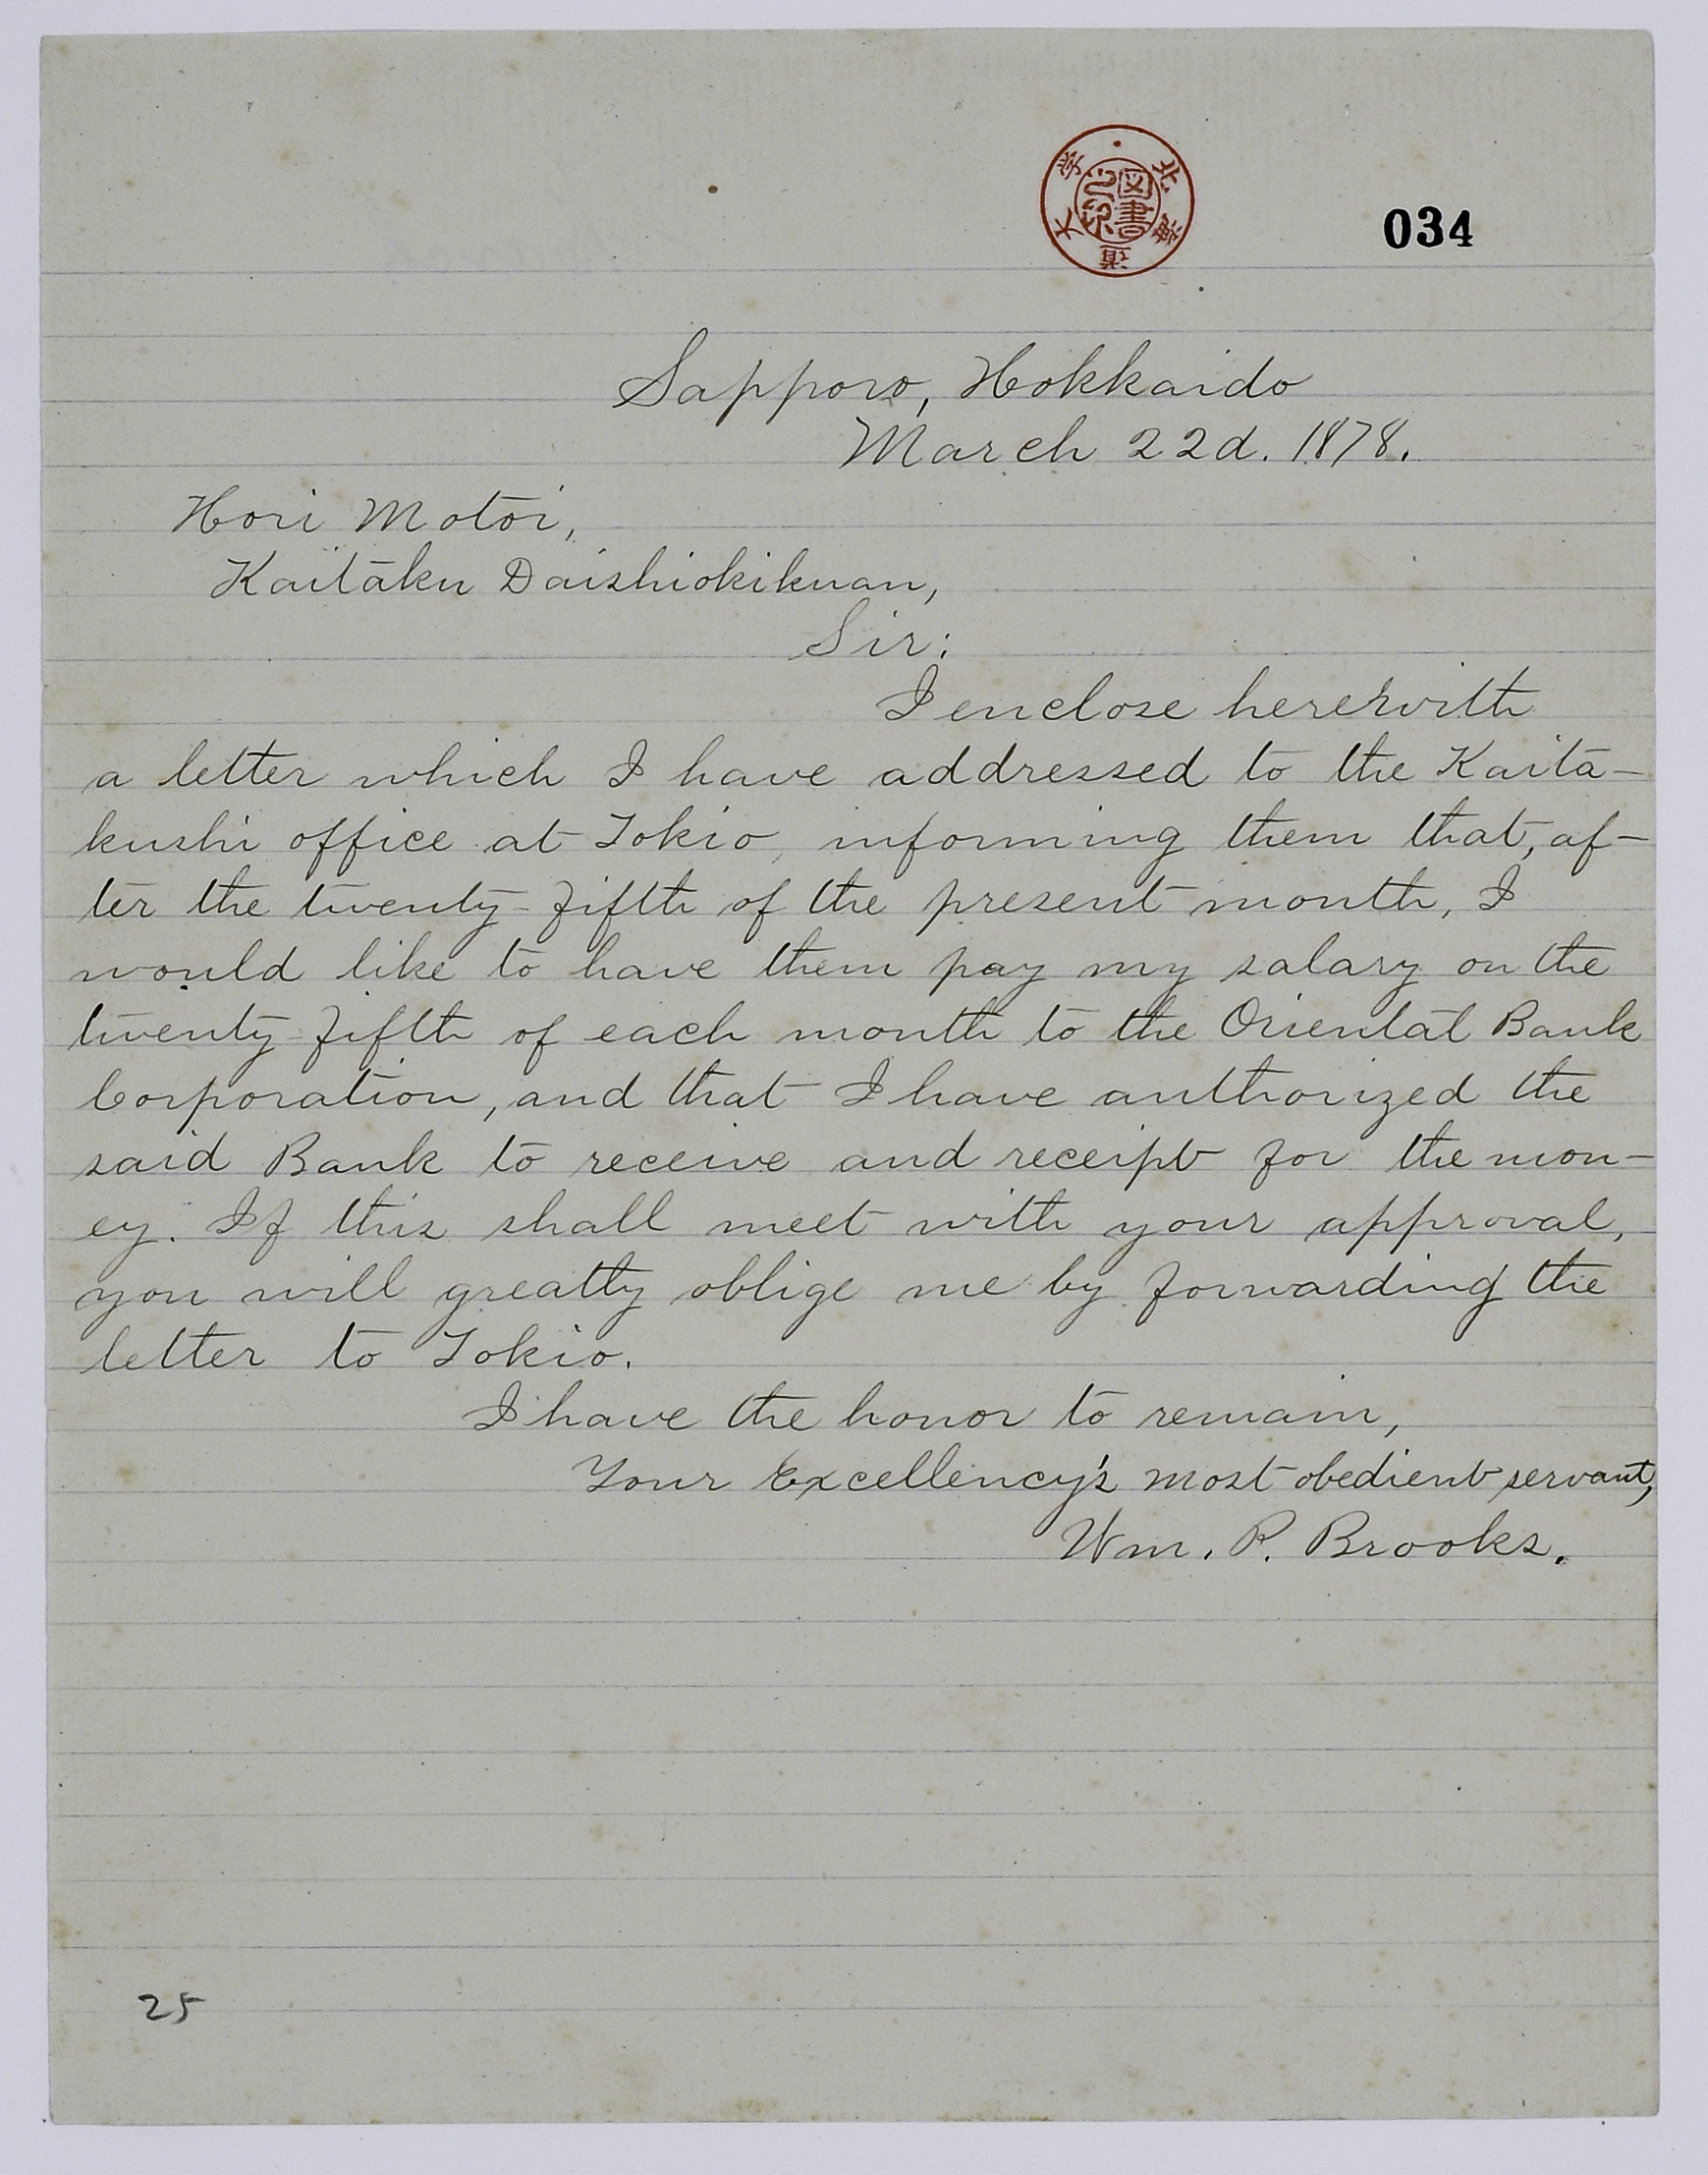 北海道大学
図書之印
034
Sapporo, Hokkaido
March 22d. 1878.
Hori Motoi,
Kaitaku Daishiokikuan,
Sir:
I enclose herewith
a letter which I have addressed to the Kaita-
kushi office at Tokio, informing them that, af-
ter the twenty-fifth of the present month, I
would like to have them pay my salary on the
twenty-fifth of each month to the Oriental Bank
Corporation, and that I have authorized the
said Bank to receive and receipt for the mon-
ey. If this shall meet with your approval,
you will greatly oblige me by forwarding the
letter to Tokio.
I have the honor to remain,
Your Excellency's most obedient servant,
Wm. P. Brooks.
25